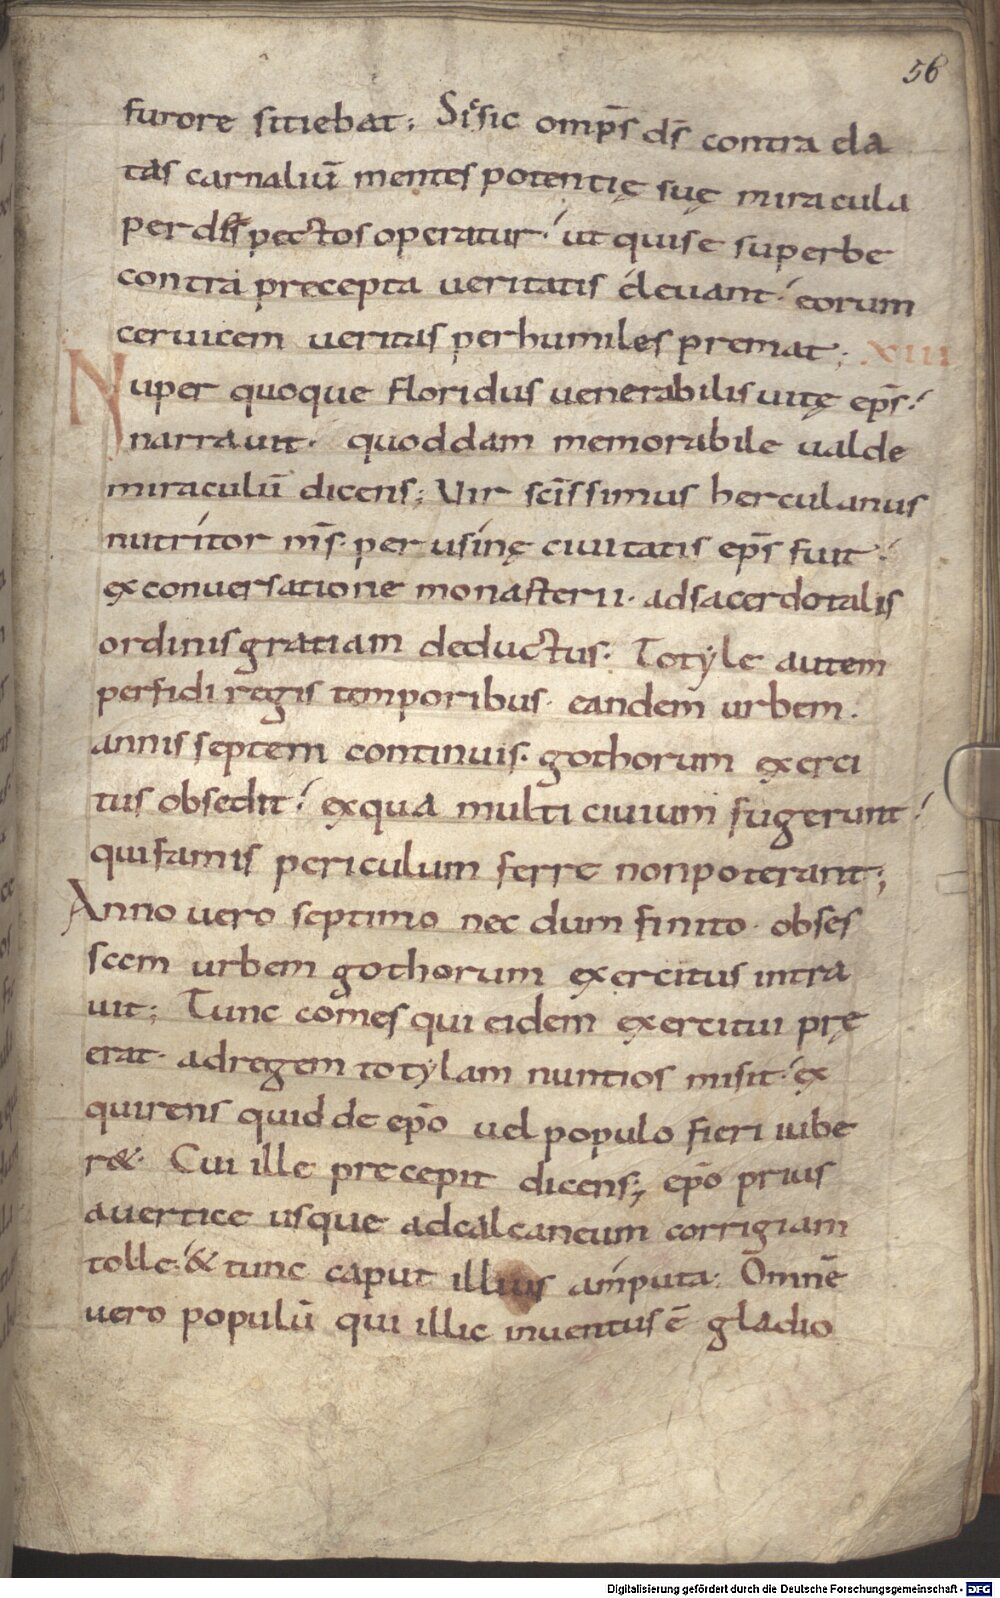 56
furore sitiebat; Sic sic omp̄s d̄s contra ela
tas carnaliū mentes potentię suę miracula
per despectos operatur. ut qui se superbe
contra precepta ueritatis eleuant. eorum
ceruicem ueritas per humiles premat; XIII
Nuper quoque floridus uenerabilis uitę ep̄s.
narrauit. quoddam memorabile ualde
miraculū dicens; Vir sc̄issimus herculanus
nutritor m̄s. perusinę ciuitatis ep̄s fuit.
ex conuersatione monasterii. ad sacerdotalis
ordinis gratiam deductus. Totyle autem
perfidi regis temporibus. eandem urbem.
annis septem continuis. gothorum exerci
tus obsedit. ex qua multi ciuium fugerunt.
qui famis periculum ferre non poterant;
Anno uero septimo nec dum finito. obses
seem urbem gothorum exercitus intra
uit; Tunc comes qui eidem exercitui prę
erat. ad regem totylam nuntios misit. ex
quirens quid de ep̄o uel populo fieri iube
r&. Cui ille precepit dicens; ep̄o prius
a uertice usque ad calcaneum corrigiam
tolle. & tunc caput illius amputa. Omnē
uero populū qui illic inuentus ē gladio
Digitalisierung gefördert durch die Deutsche Forschungsgemeinschaft - DFG